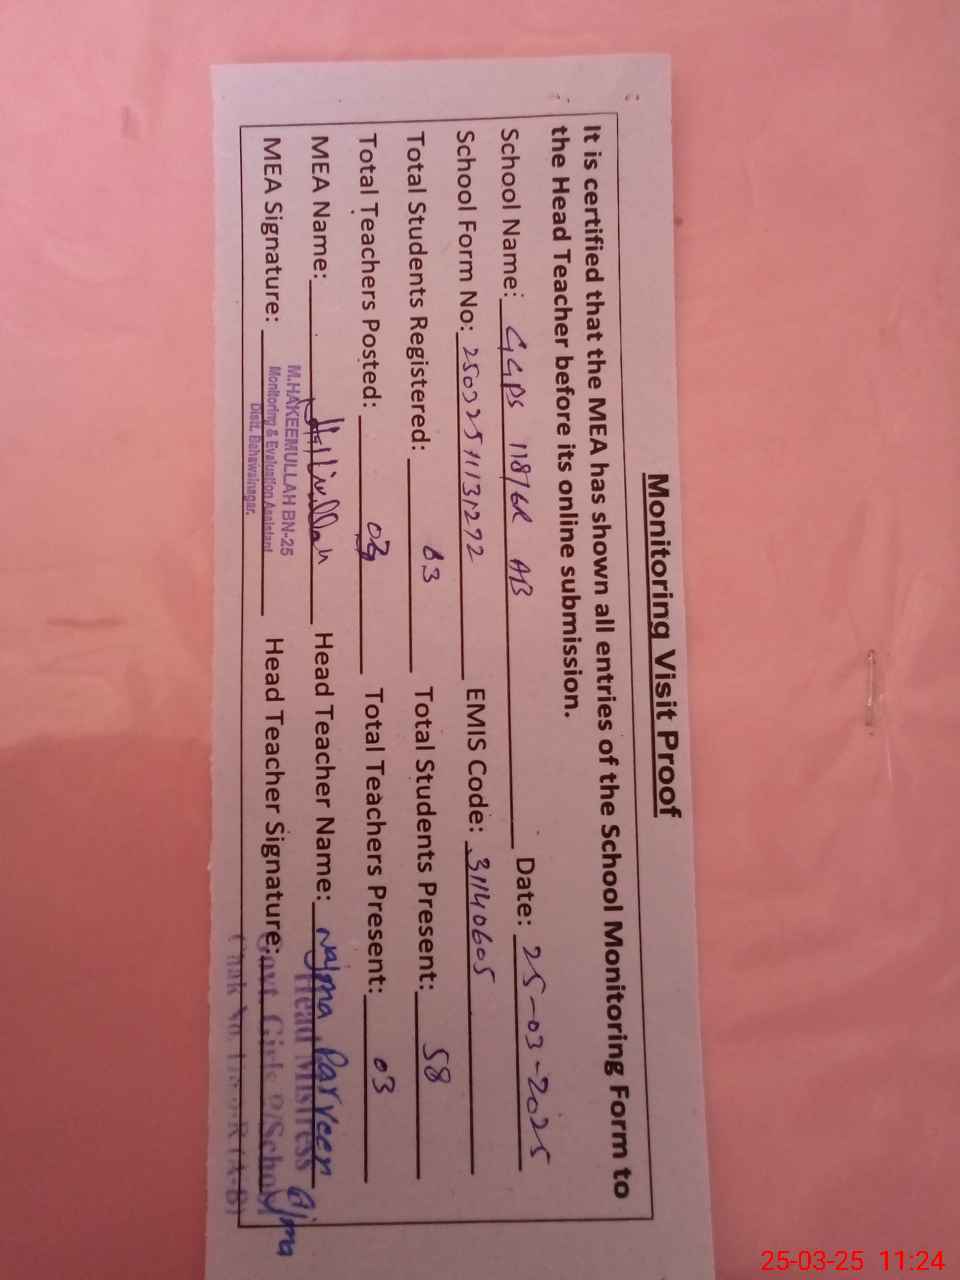 Monitoring Visit Proof
It is certified that the MEA has shown all entries of the School Monitoring Form to
the Head Teacher before its online submission.
School Name: GGPS 118/6R AB Date: 25-03-2025
School Form No: EMIS Code: 31140605
Total Students Registered: 63 Total Students Present: 58
Total Teachers Posted: 03 Total Teachers Present: 03
MEA Name: Head Teacher Name: Najma Parveen
Head Mistress
M.HAKEEMULLAH BN-25
MEA Signature: Head Teacher Signature: Najma
Monitoring & Evaluation Assistant
Govt. Girls P/School
Distt. Bahawalnagar.
Chak No.
25-03-25 11:24